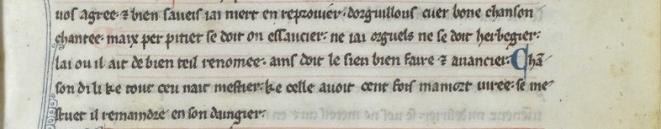 uos agree ⁊ bien saueis iai mert en reprouier dorguillous cuer bone chanson
chantee· maix per pitiet se doit on essaucier· ne iai orguels ne se doit herbegier·
lai ou il ait de bien teil renomee· ains doit le sien bien faire ⁊ auancier· Chā
son di li ke tout ceu nait mestier· ke celle auoit cent fois mamort iuree· se me
stuet il remaindre en son dangier·